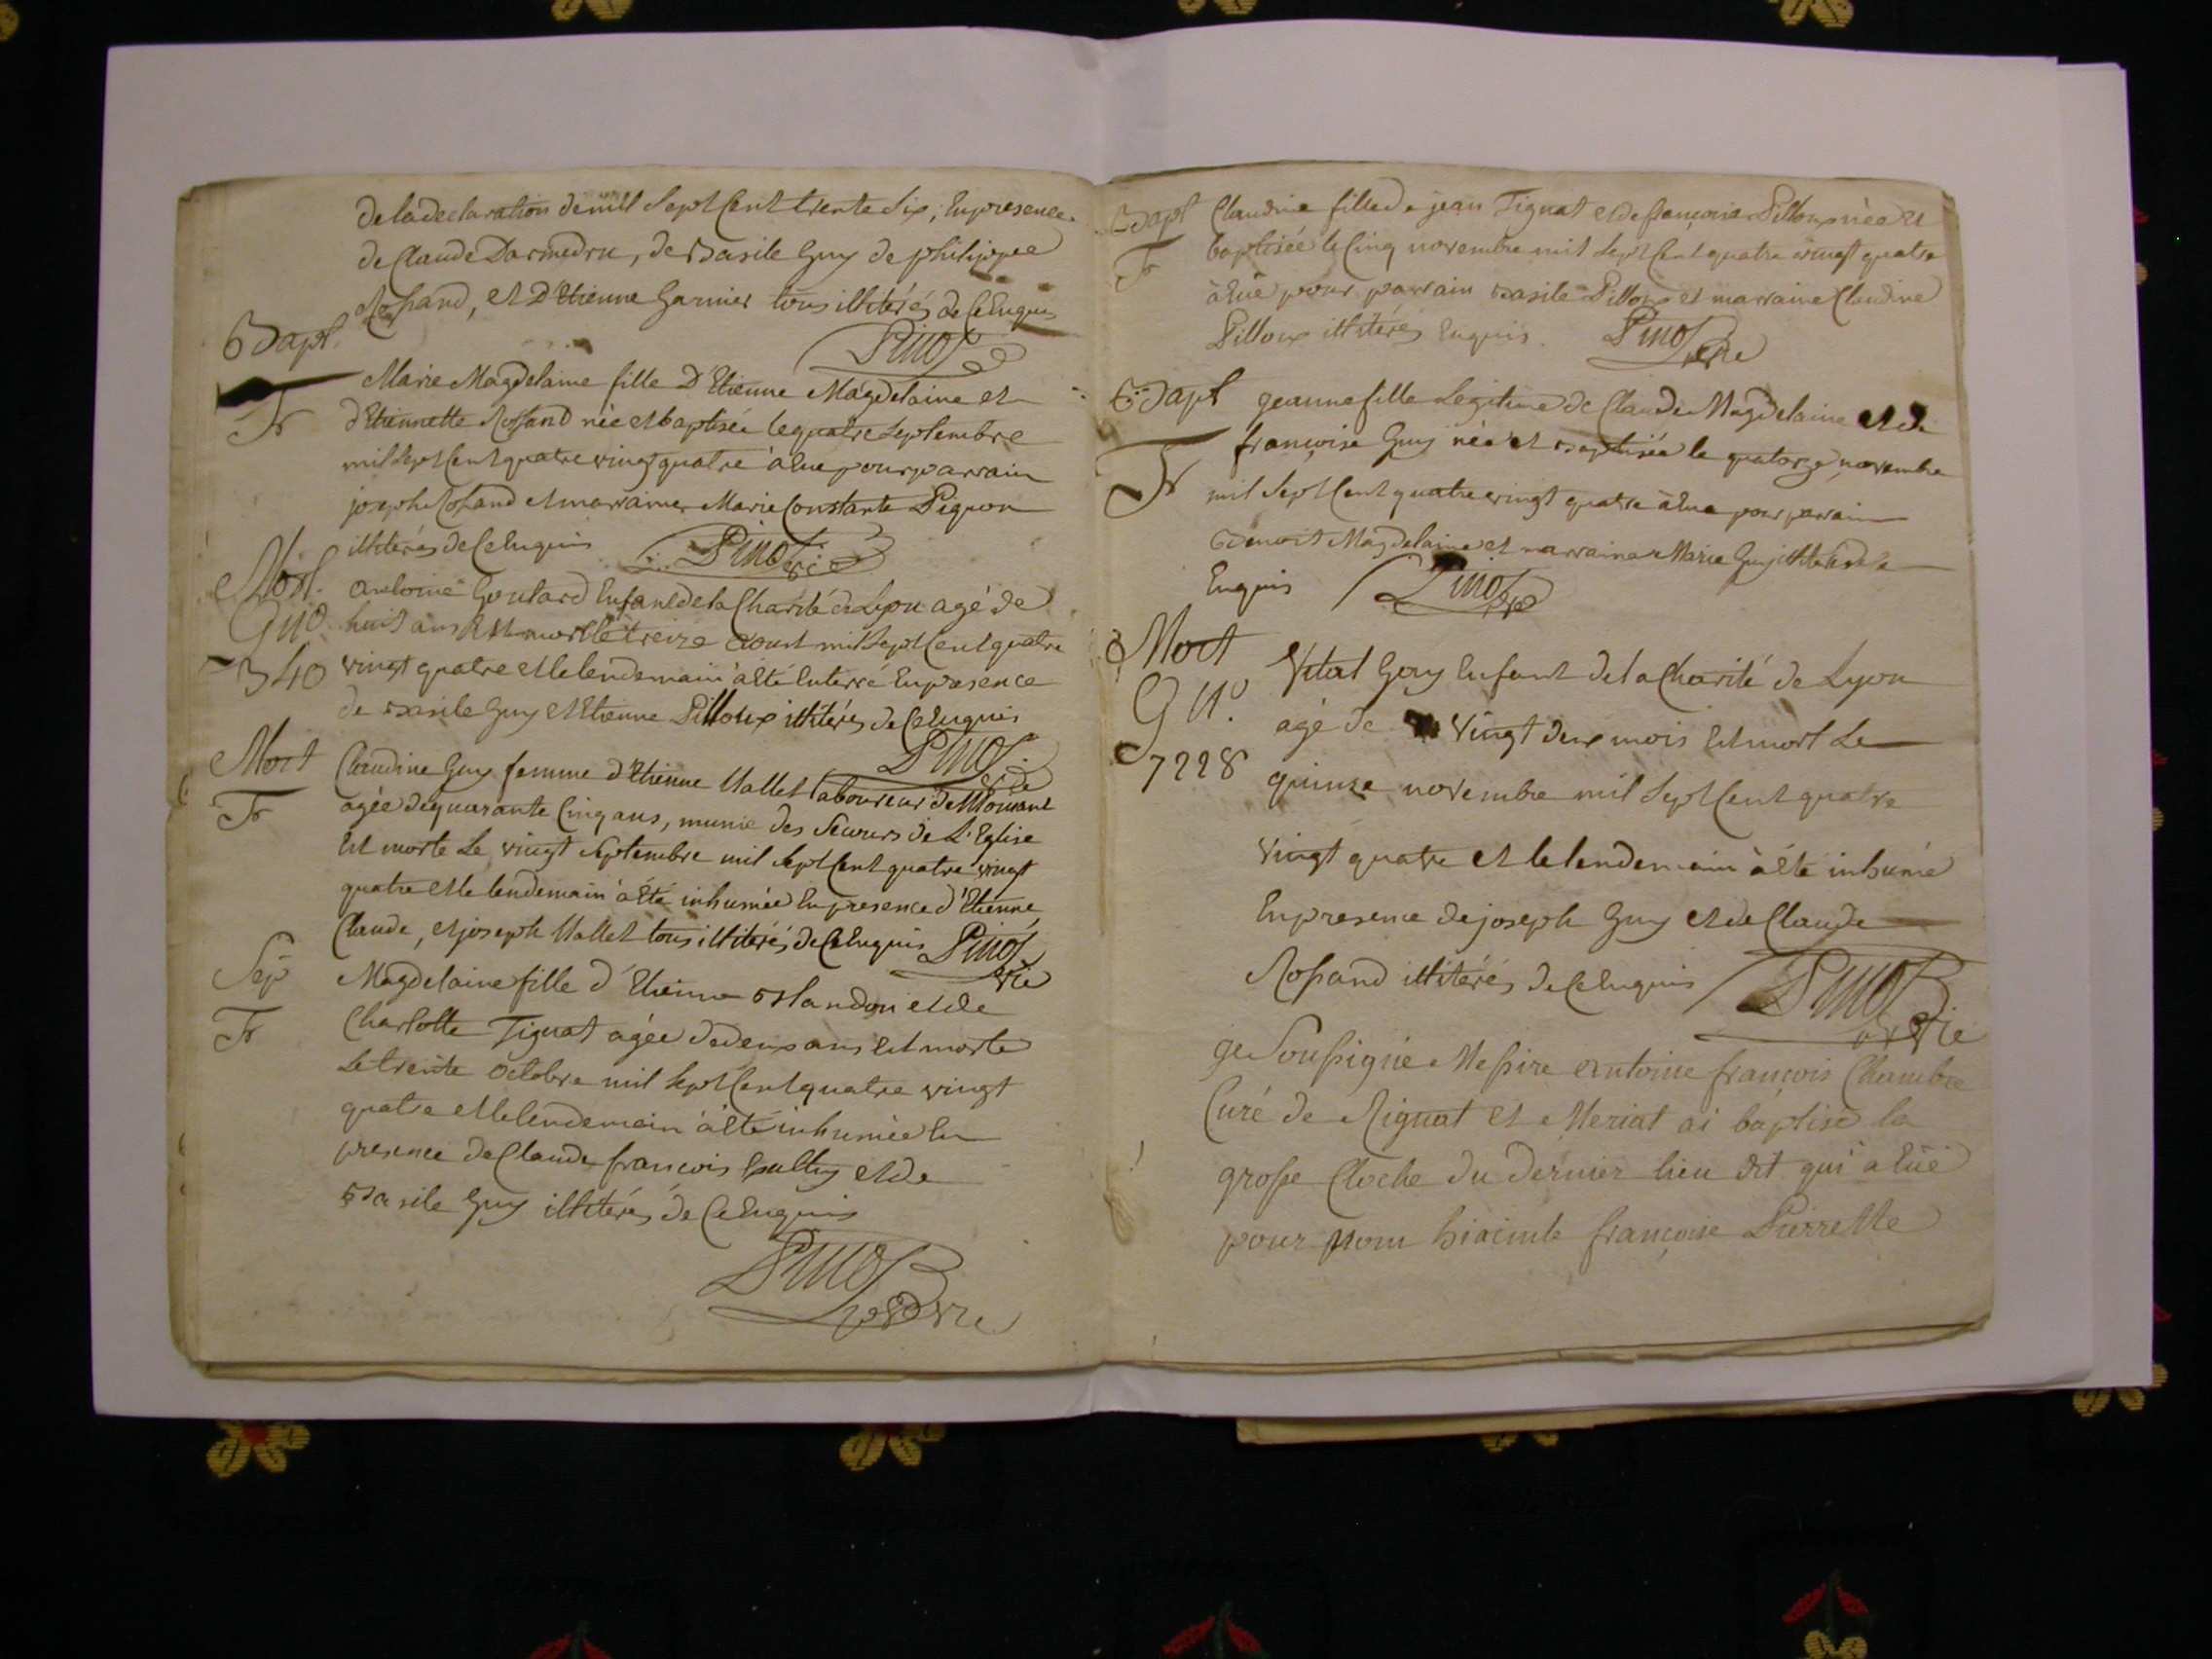 de la declaration de mill sept Cent trente Six, En presence
de Claude Darmedru, de Basile Guy de philippe
Rossand, et D'Etienne Garnier tous illitérés de Ce Enquis
Pinos
Bapt.
Marie Magdelaine fille D'Etienne Magdelaine et
Fr
d'Etiennette Rossand née et baptisée le quatre septembre
mil sept Cent quatre vingt quatre à Eue pour parrain
joseph Rossand et marraine Marie Constante Pignon
illitérés de Ce Enquis Pinos
Mort.
antoine Goutard Enfant de la Charité de Lyon agé de
G no. huit ans Est mort le treize aoust mil sept Cent quatre
340 vingt quatre et le lendemain à Eté Enterré En presence
de Basile Guy et Etienne Pilloux illitérés de Ce Enquis
Pinos
Mort Claudine Guy femme d'Etienne Vallet laboureur de
Fr agée de quarante Cinq ans, munie des Secours de L'Eglise
Est morte Le vingt septembre mil sept Cent quatre vingt
quatre et le lendemain à Eté inhumée En presence d'Etienne
Claude, et joseph Vallet tous illitérés de Ce Enquis Pinos
Sep Magdelaine fille d'Etienne Blandon et de
Fr Charlotte Tignat agée de deux ans Est morte
Le trente octobre mil sept Cent quatre vingt
quatre et le lendemain à Eté inhumée En
presence de Claude françois et de
Basile Guy illitérés de Ce Enquis
Pinos
Bapt Claudine fille de jean Tignat et de françoise Pilloux née et
Fr baptisée le Cinq novembre mil sept Cent quatre vingt quatre
à Eüe pour parrain Basile Pilloux et marraine Claudine
Pilloux illitérés Enquis. Pinos
Bapt jeanne fille Legitime de Claude Magdelaine et de
Fr françoise Guy née et Baptisée le quatorze novembre
mil sept Cent quatre vingt quatre à Eue pour parrain
Benoit Magdelaine et marraine Marie Guy illitérés de Ce
Enquis Pinos
Mort Vital Gouy Enfant de la Charité de Lyon
G no. agé de vingt deux mois Est mort Le
7228 quinze novembre mil sept Cent quatre
vingt quatre et le lendemain à Eté inhumé
En presence de joseph Guy et de Claude
Rossand illitérés de Ce Enquis Pinos
je Soussigné Messire antoine françois Chambre
Curé de Rignat et Meriat ai baptisé la
grosse Cloche du dernier lieu dit qui a Eüe
pour nom hiacinte françoise Pierrette